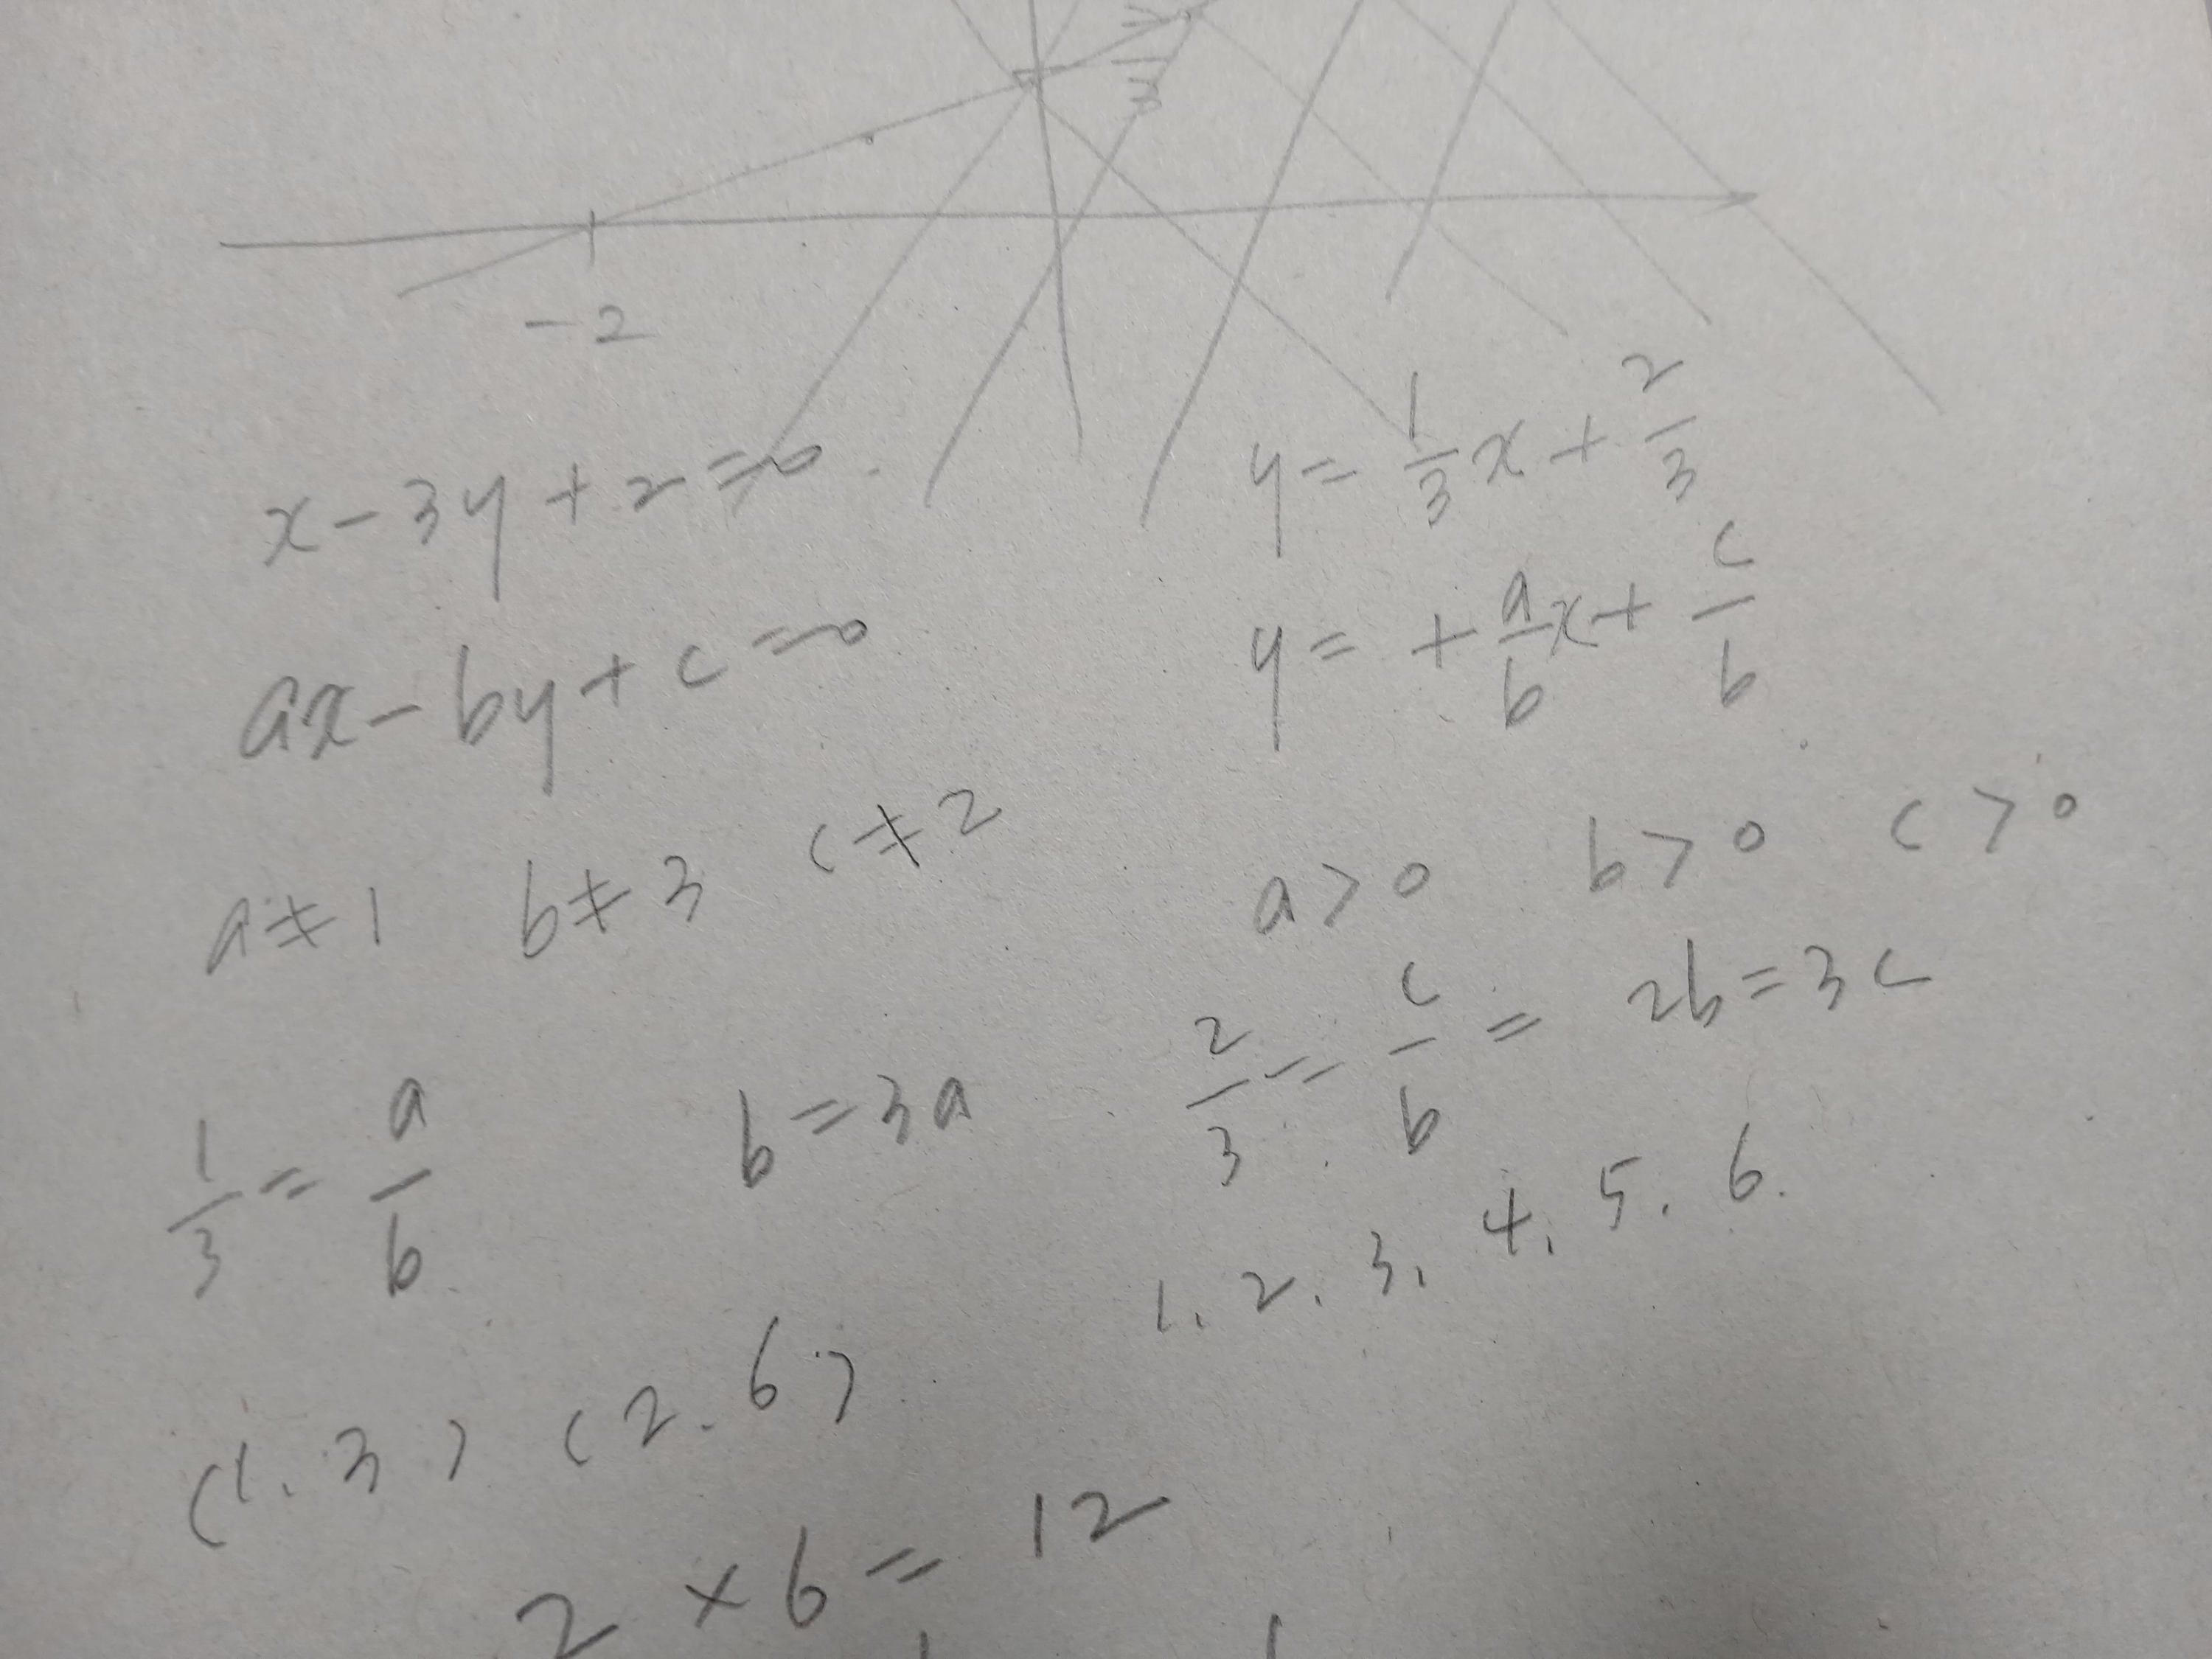 3
-2
x-3y+2=0. y=1/3x+2/3
ax-by+c=0 y=+a/bx+c/b
a≠1 b≠3 c≠2 a>0 b>0 c>0
1/3=a/b b=3a 2/3=c/b= 2b=3c
1. 2. 3. 4. 5. 6.
(1.3) (2.6)
2×6=12